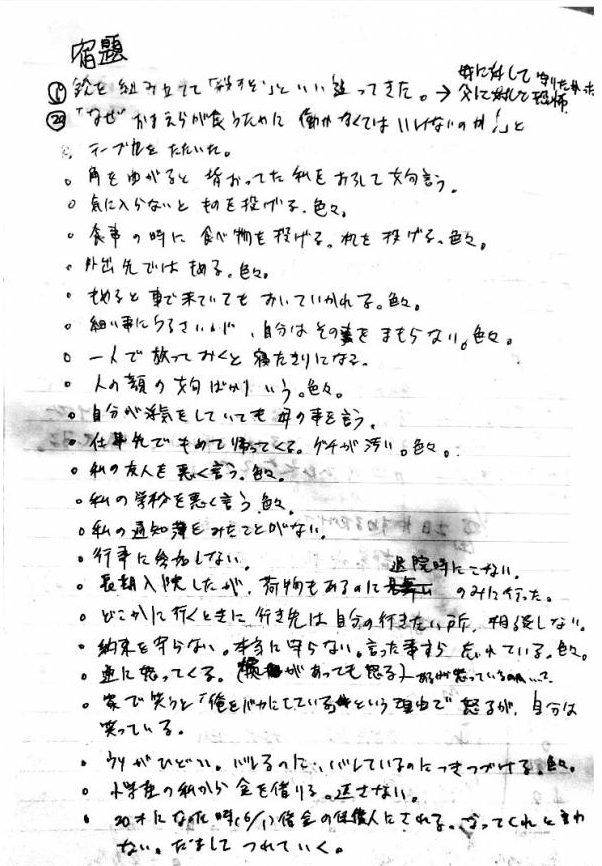 宿題
①銃を組み立てて「殺すぞ」といい迫ってきた。→母に対して守りたかった
父に対して恐怖
⑳「なぜ おまえらが食うために 働かなくてはいけないのか!」と
テーブルをたたいた。
。角をまがると 背おってた私をおろして文句言う。
。気に入らないと ものを投げる。色々。
。食事の時に 食べ物を投げる。机を投げる。色々。
。外出先ではもめる。色々。
。もめると車で来ていても おいていかれる。色々。
。細い事にうるさいが、自分はその事をまもらない。色々。
。一人で放っておくと寝たきりになる。
。人の顔の文句ばかりいう。色々。
。自分が浮気をしていても 母の事を言う。
。仕事先でもめて帰ってくる。グチが汚い。色々。
。私の友人を悪く言う。色々。
。私の学校を悪く言う。色々。
。私の通知簿をみたことがない。
。行事に参加しない。
退院時にこない。
。長期入院したが、荷物もあるのに のみに行った。
。どこかに行くときに 行き先は自分の行きたい所、相談しない。
。約束を守らない。本当に守らない。言った事すら 忘れている。色々。
。逆に怒ってくる。(があっても怒る)
。家で笑うと「俺をバカにしている」という理由で 怒るが、自分は
笑っている。
。ウソがひどい。バレるのに、バレているのにつきつづける。色々。
。小学生の私から 金を借りる。返さない。
。20才になった時(6/1)借金の保証人にされる。なってくれと言わ
ない。だまして つれていく。